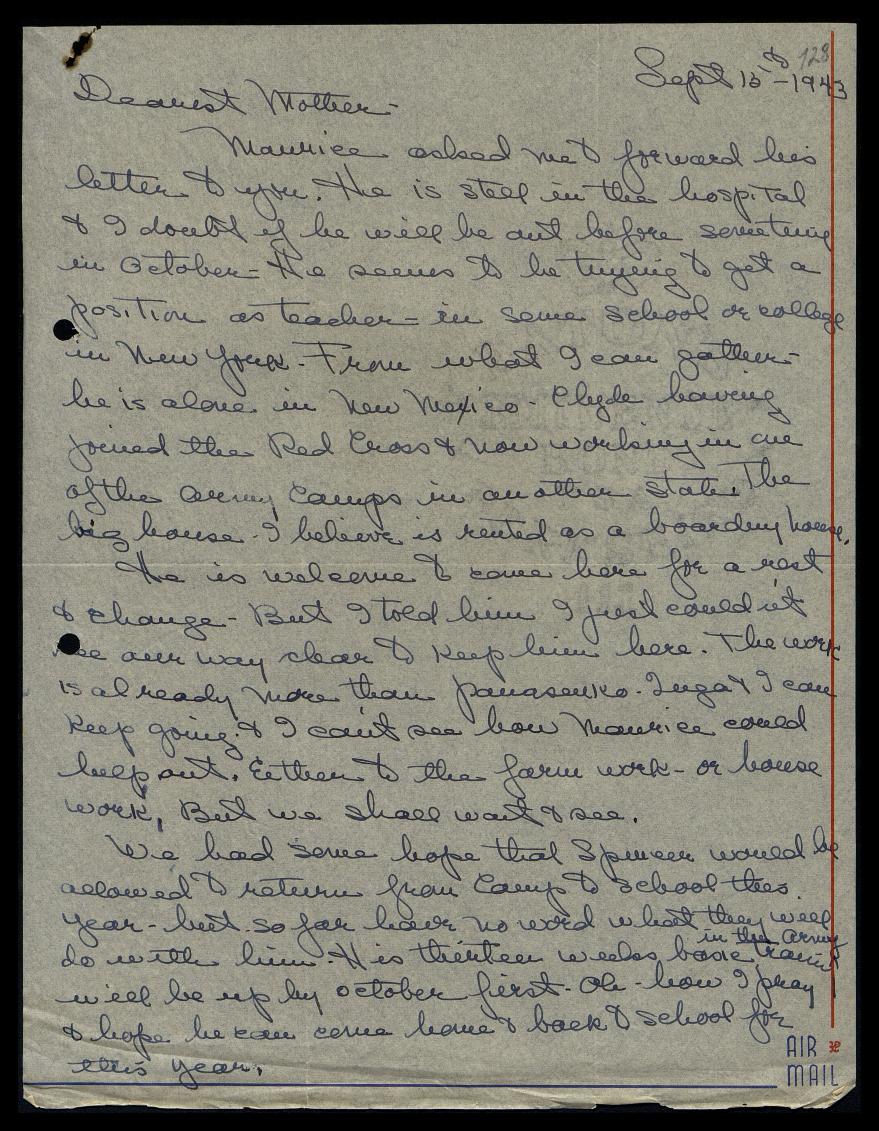 128
Sept 15th - 1943
Dearest Mother -
Maurice asked me to forward his
letter to you. He is still in the hospital
& I doubt if he will be out before sometime
in October - He seems to be trying to get a
position as teacher - in some school or college
in New York. From what I can gather -
he is alone in New Mexico - Clyde having
joined the Red Cross & now working in one
of the army camps in another state. The
big house - I believe is rented as a boarding house.
He is welcome to come here for a rest
& change - But I told him I just couldn't
see our way clear to keep him here. The work
is already more than Panasenko - Inga & I can
keep going & I can't see how Maurice could
help out. Either to the farm work - or house
work. But we shall wait & see.
We had some hope that Spencer would be
allowed to return from Camp to school this
year - but so far have no word what they will
do with him. His thirteen weeks basic training
in the army
will be up by October first - Oh - how I pray
& hope he can come home & back to school for
this year.
AIR
MAIL